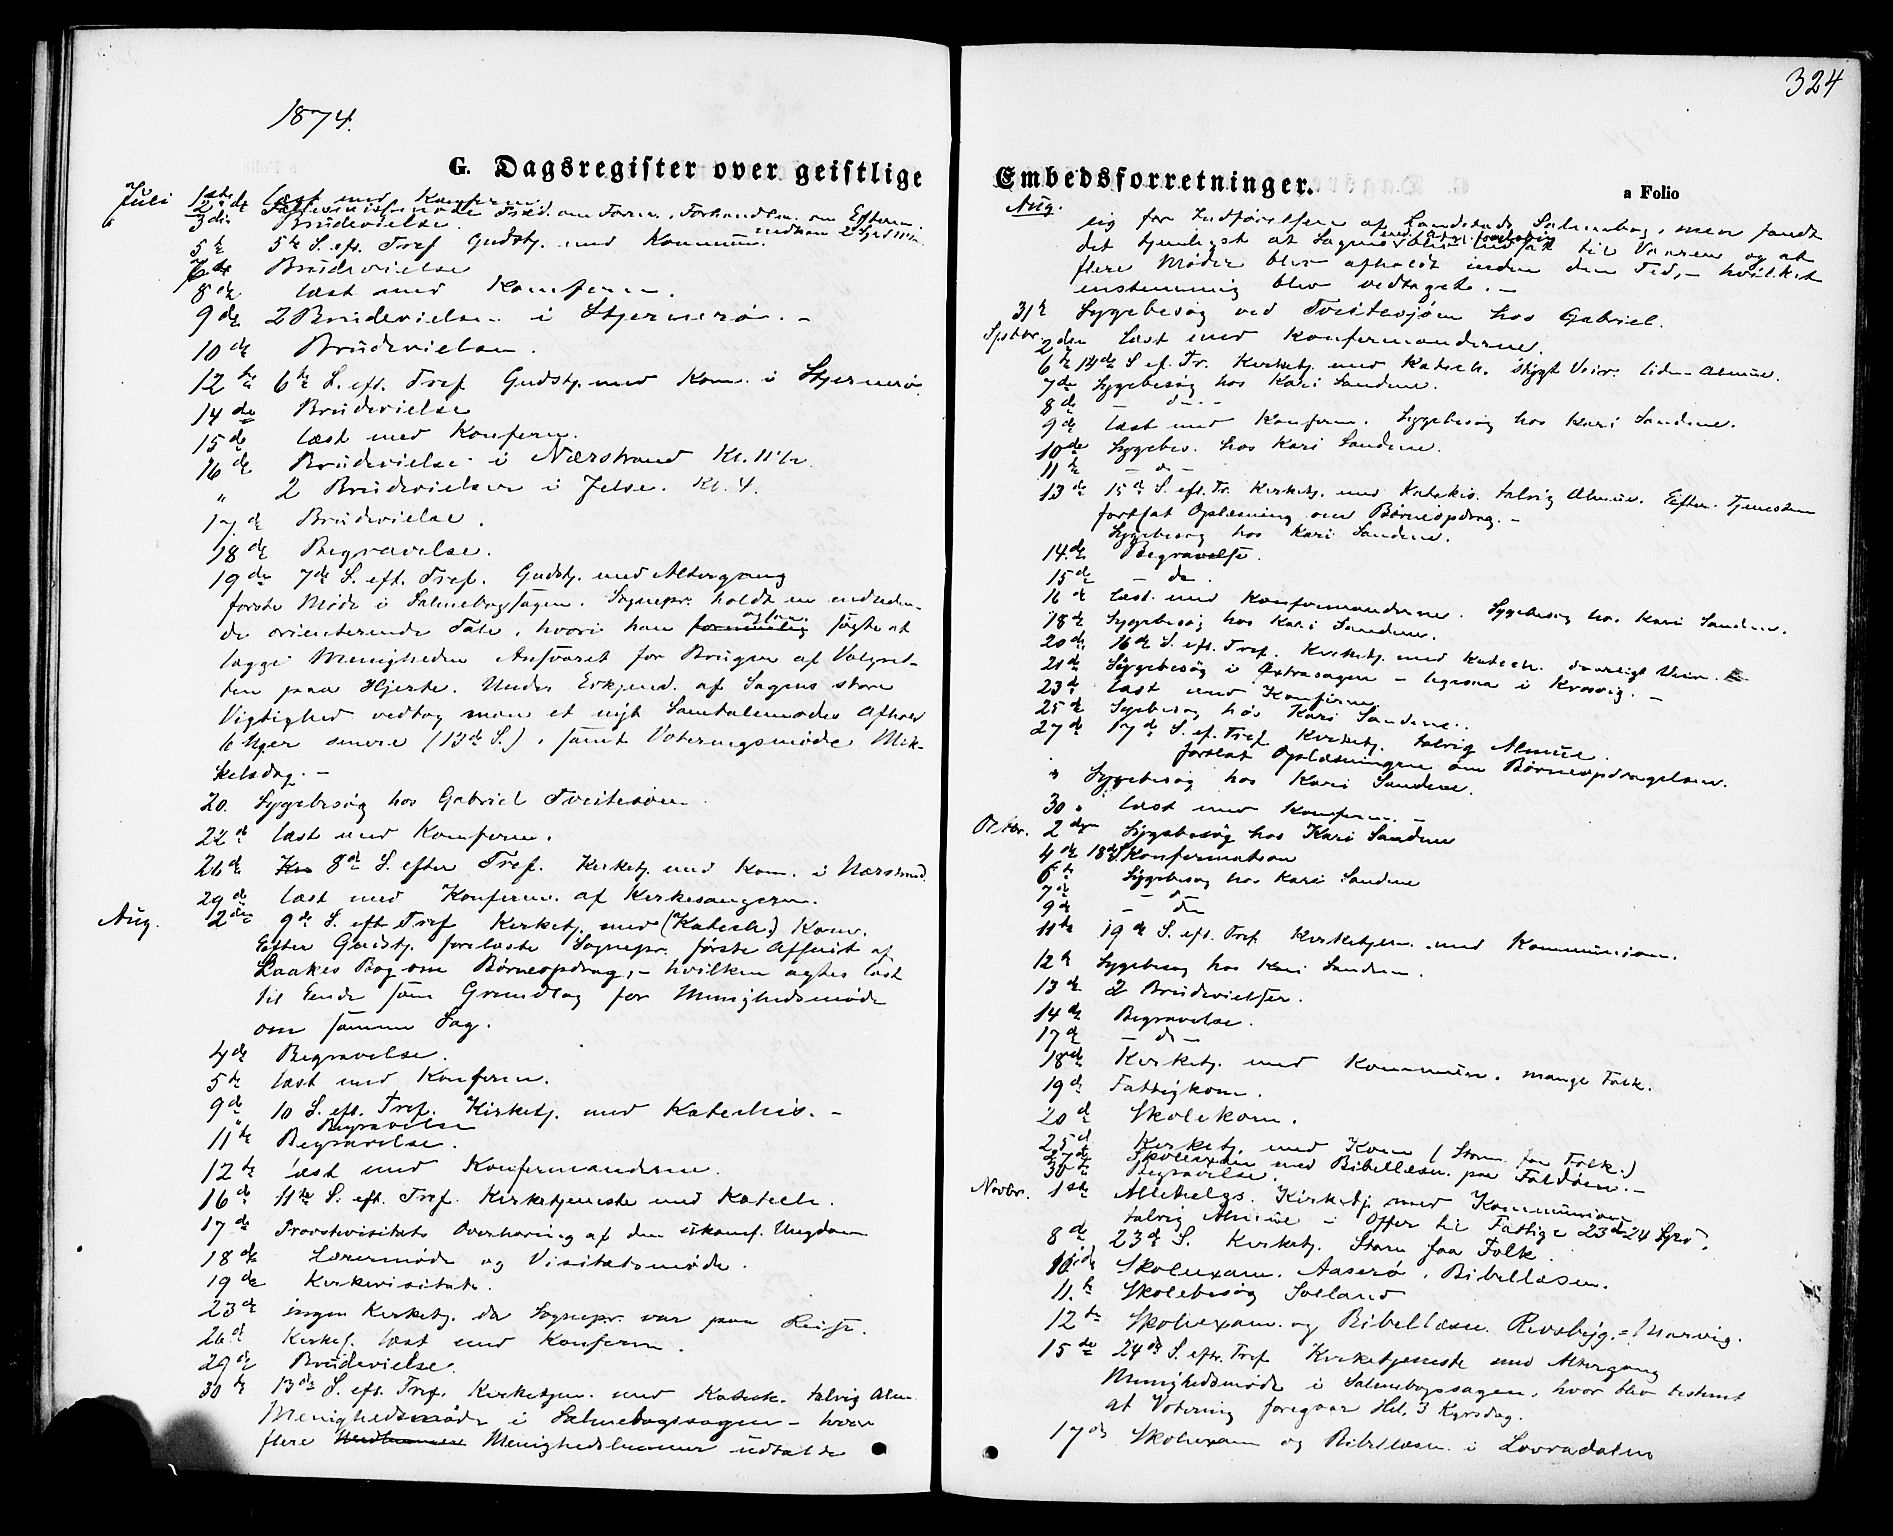 1874.
G. Dagsregister over geistlige
Juli 1ste læst med Konferm.
2de
3die Brudevielse.
5te 5te S. eft. Tref Gudstj. med Kommun.
7de Brudevielse
8de læst med Konferm.
9de 2 Brudevielse i Stjernerø. –
10de Brudevielse.
12te 6te S. eft. Tref Gudstj. med Kom. i Stjernerø
14de Brudevielse
15de læst med Konferm.
16de Brudevielse i Nærstrand Kl. 11½
" 2 Brudevielser i Jelse. Kl. 4.
17de Brudevielse.
18de Begravelse.
19de 7de S. eft. Tref. Gudstj. med Altergang
første Møde i Salmebogsagen. Sognepr. holdt en indleden-
de orienterende Tale, hvori han søgte at
lægge Menigheden Ansvaret for Brugen af Valgret-
ten paa Hjerte. Under Erkjend. af Sagens store
Vigtighed vedtog man et nyt Samtalemødes Afhold
6 Uger senere (13de S.), samt Voteringsmøde Mik-
kelsdag. –
20. Sygebesøg hos Gabriel Tveitesøen
22de læst med Konferm.
26de 8de S. efter Tref. Kirketj. med Kom. i Nærstrand.
29de læst med Konferm. af Kirkesangeren.
Aug. 2den 9de S. eft Tref Kirketj. med (Katech.) Kom.
Efter Gudstj. forelæste Sognepr. første Afsnit af
Laakes Bog om Børneopdrag, – hvilken agtes læst
til Ende som Grundlag for Menighedsmøde
om samme Sag.
4de Begravelse.
5te læst med Konferm.
9de 10 S. eft. Tref. Kirketj. med Katechis. –
" Begravelse
11te Begravelse.
12te læst med Konfermanderne.
16de 11te S. eft. Tref. Kirketjeneste med Katech.
17de Provstevisitats Overhøring af den ukonf. Ungdom
18de Lærermøde og Visitatsmøde.
19de Kirkevisitats.
23de ingen Kirketj. da Sognepr. var paa Reise.
26de Kirkes. læst med Konferm.
29de Brudevielse.
30te 13de S. eft. Tref. Kirketjen. med Katech. talrig Alm.
Menighedsmøde i Salmebogssagen – hvor
flere Menighedslemmer udtalde
324
Embedsforretninger.
a Folio
Aug. sig for Indførelsen af Landstads Salmebog, men fandt
det tjenligst at Sagen til Vaaren og at
flere Møder blev afholdt inden den Tid, – hvilket
enstemmig blev vedtaget. –
31te Sygebesøg ved Tveitesjøen hos Gabriel.
Sptbr. 2den Læst med Konfermanderne.
6te 14de S ef. Tr. Kirketj. med Katech. stygt Veir. liden Almue.
7de Sygebesøg hos Kari Sandene.
8de – do –
9de læst med Konferm. Sygebesøg hos Kari Sandene.
10de Sygebes. hos Kari Sandene.
11te – do –
13de 15de S. eft. Tr. Kirketj. med Katekis. talrig Almue. Efter Tjenesten
fortsat Oplæsning om Børneopdrag. –
Sygebesøg hos Kari Sandene.
14de Begravelse.
15de – do.
16de læst med Konfermanderne. Sygebesøg hos Kari Sandene.
18de Sygebesøg hos Kari Sandene.
20de 16de S. eft. Tref. Kirketj. med Katech. daarligt Veir.
21de Sygebesøg i –
23de læst med Konferm.
25de Sygebesøg hos Kari Sandene.
27de 17de S. ef. Tref Kirketj. talrig Almue.
fortsat Oplæsningen om Børneopdragelsen.
" Sygebesøg hos Kari Sandene.
30 " læst med Konferm. –
Octbr. 2den Sygebesøg hos Kari Sandene
4de 18de S Konfermation
6te Sygebesøg hos Kari Sandene
7de
9de – do
11te 19de S. eft. Tref Kirketjen. med Kommunion.
12te Sygebesøg hos Kari Sandene.
13de 2 Brudevielser.
14de Begravelse.
17de – do –
18de Kirketj. med Kommun. mange Folk.
19de Fattigkom.
20de Skolekom.
25de Kirketj. med Kom (Storm faa Folk.)
27de Skolexam med Bibellæsn. paa Foldøen. –
30te Begravelse.
Novbr. 1ste Allehelgs. Kirketj. med Kommunion
talrig Almue – Offer til Fattige 23de 24
8de 23de S. Kirketj. Storm faa Folk.
10de Skolexam. Aaserø. Bibellæsn.
11te Skolebesøg Solland
12te Skolexam. og Bibellæsn. Marvig.
15de 24de S. eft. Tref Kirketjeneste med Altergang
Menighedsmøde i Salmebogssagen, hvor blev bestemt
at Votering foregaar
17de Skolexam og Bibellæsn. i Lovradalen